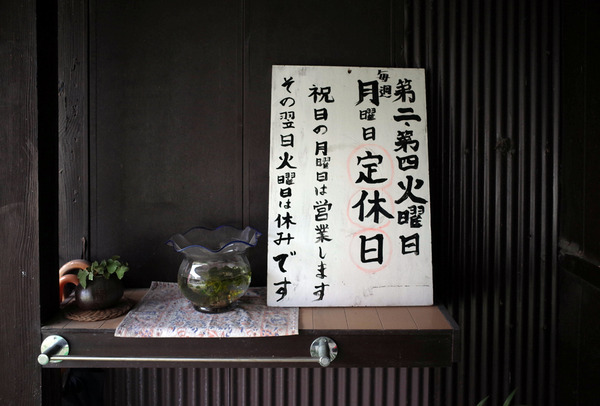 第二、第四火曜日
毎週
月曜日定休日
祝日の月曜日は営業します
その翌日火曜日は休みです